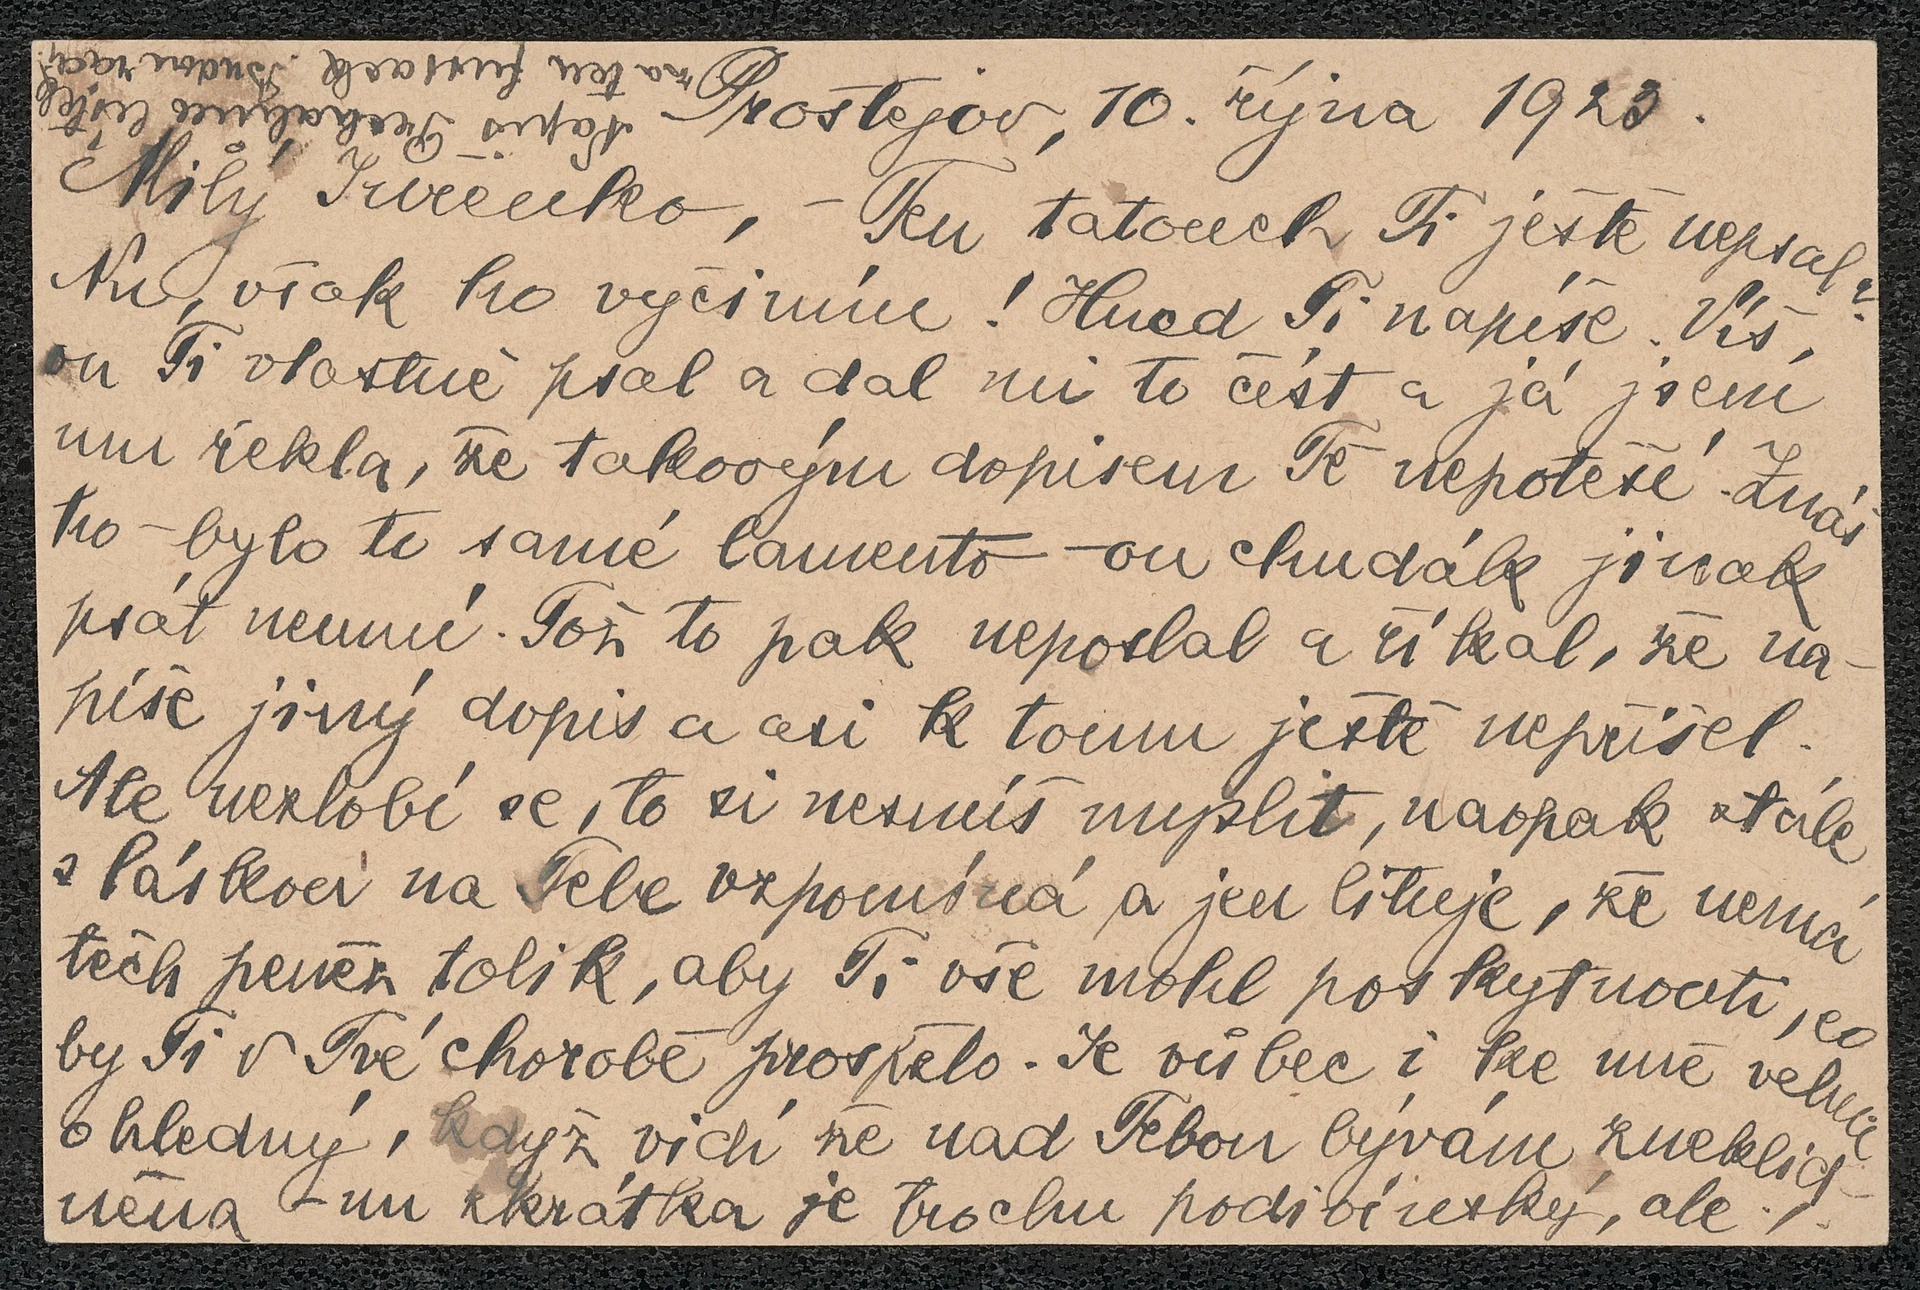 Prostějov, 10. října 1923.
Milý Jurenko, – Ten tatouch Ti ještě nepsal?
Nu, však ho vyčiním! Hned Ti napíše. Víš,
on Ti vlastně psal a dal mi to číst a já jsem
mu řekla, že takovým dopisem Tě nepotěší. Znáš
ho – bylo to samé lamento – on chudák jinak
psát neumí. Tož to pak neposlal a říkal, že na-
píše jiný dopis a asi k tomu ještě nepřišel.
Ale nezlobí se, to si nesmíš myslit, naopak stále
s láskou na Tebe vzpomíná a jen lituje, že nemá
těch peněz tolik, aby Ti vše mohl poskytnouti, co
by Ti v Tvé chorobě prospělo. Je vůbec i ke mně velmi
ohledný, když vidí že nad Tebou bývám zneklid-
něna – nu zkrátka je trochu podivínský, ale . /.
Napiš lístek
na ten . Budou rády.